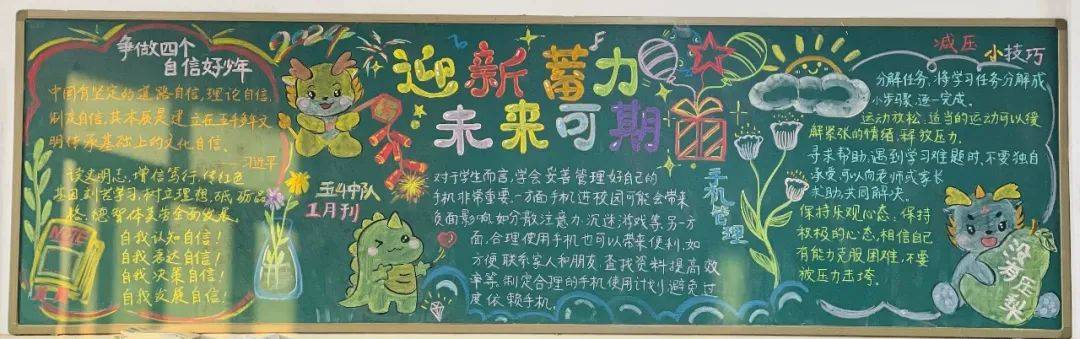 争做四个
自信好少年
中国有坚定的道路自信,理论自信,
制度自信,其本质是建立在5千多年文
明传承基础上的文化自信。
——习近平
读史明志,增信笃行,传红色
基因,刻苦学习,树立理想,砥砺品
格,德智体美劳全面发展。
自我认知自信!
自我表达自信!
自我决策自信!
自我发展自信!
NOTE
2024
迎新蓄力
未来可期
五4中队
1月刊
对于学生而言,学会妥善管理好自己的
手机非常重要,一方面手机进校园可能会带来
负面影响,如分散注意力、沉迷游戏等,另一方
面,合理使用手机也可以带来便利,如
方便联系家人和朋友,查找资料提高效
率等,制定合理的手机使用计划,避免过
度依赖手机。
手机管理
减压小技巧
分解任务,将学习任务分解成
小步骤,逐一完成。
运动放松,适当的运动可以缓
解紧张的情绪,释放压力。
寻求帮助,遇到学习难题时,不要独自
承受,可以向老师或家长
求助,共同解决。
保持乐观心态,保持
积极的心态,相信自己
有能力克服困难,不要
被压力击垮。
没有压梨